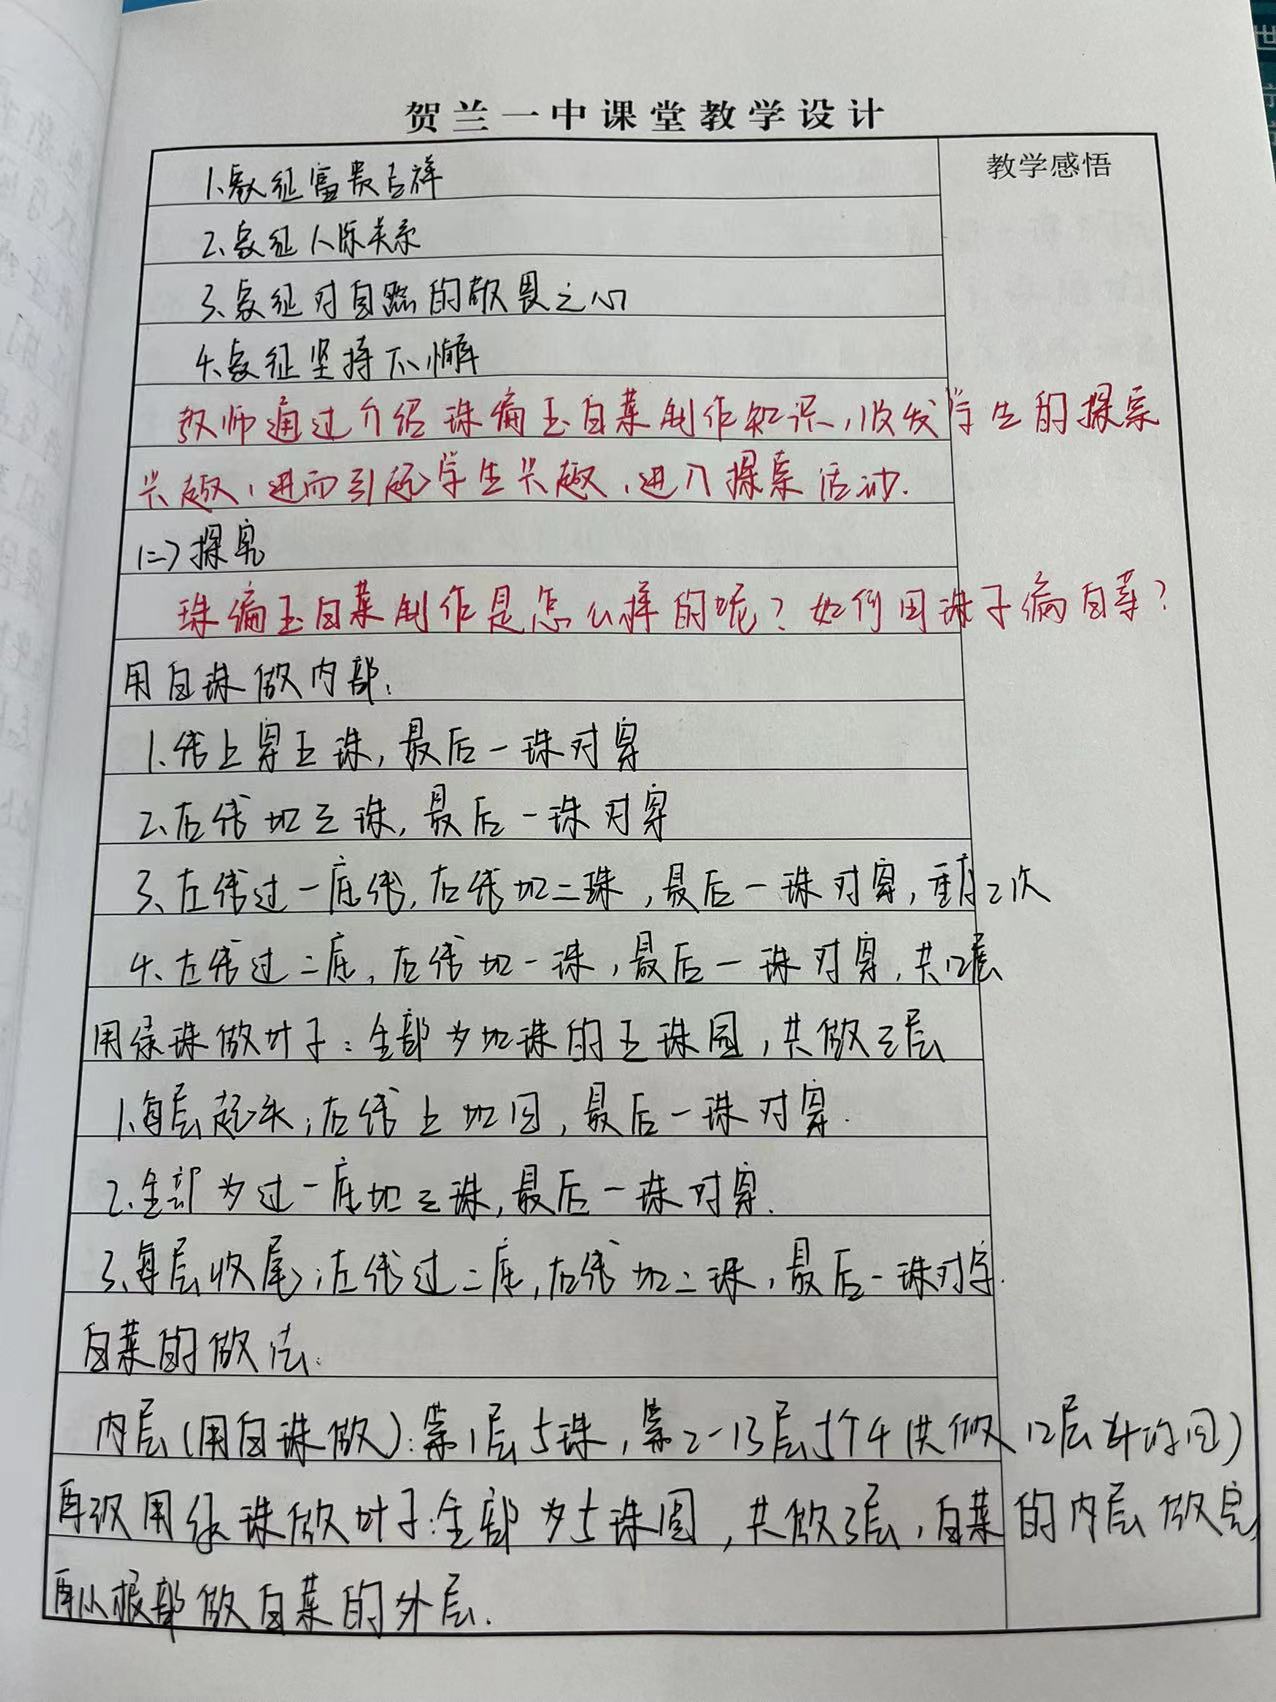 贺兰一中课堂教学设计
教学感悟
1.象征富贵吉祥
2.象征人际关系
3.象征对自然的敬畏之心
4.象征坚持不懈
教师通过介绍珠编玉白菜制作知识,激发学生的探索
兴趣,进而引起学生兴趣,进入探索活动.
(二)探究
珠编玉白菜制作是怎么样的呢?如何用珠子编白菜?
用白珠做内部:
1.线上穿五珠,最后一珠对穿
2.右线加三珠,最后一珠对穿
3.左线过一底线,右线加二珠,最后一珠对穿,重复2次
4.左线过二底,右线加一珠,最后一珠对穿,共12层
用绿珠做叶子:全部为加珠的五珠圆,共做三层
1.每层起头;右线上加四,最后一珠对穿.
2.全部为过一底加三珠,最后一珠对穿.
3.每层收尾;左线过二底,右线加二珠,最后一珠对穿.
白菜的做法:
内层(用白珠做):第1层5珠,第2-13层5个4(共做12层4的圆)
再次用绿珠做叶子:全部为5珠圆,共做3层,白菜的内层做完,
再从根部做白菜的外层.